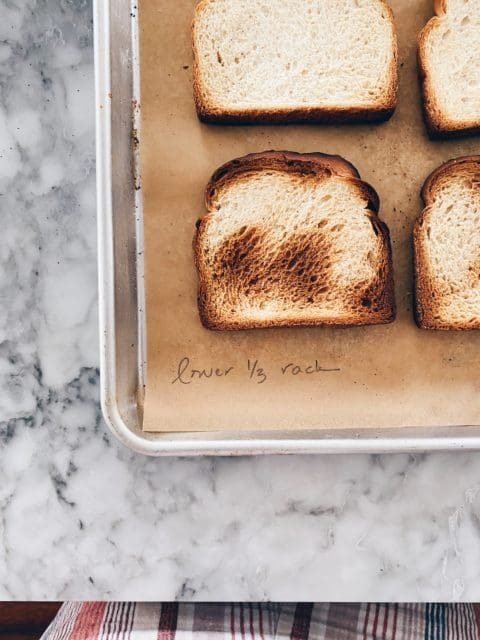 lower 1/3 rack